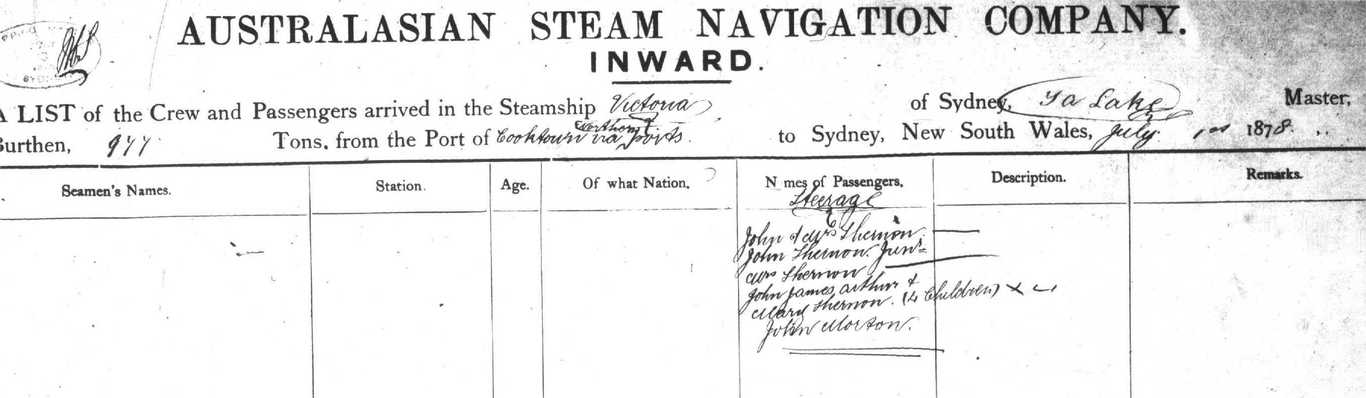 AUSTRALASIAN STEAM NAVIGATION COMPANY.
INWARD.
A LIST of the Crew and Passengers arrived in the Steamship Victoria of Sydney, Lake Master,
Burthen, 977 Tons, from the Port of Cooktown via ports. to Sydney, New South Wales, July 1st 1878.
Seamen's Names. Station. Age. Of what Nation. N mes of Passengers. Description. Remarks.
Steerage
John & Mrs Shernon
John Shernon. Junr
Mrs Shernon
John James Arthur &
Mary Shernon. (4 Children) x
John Morton.